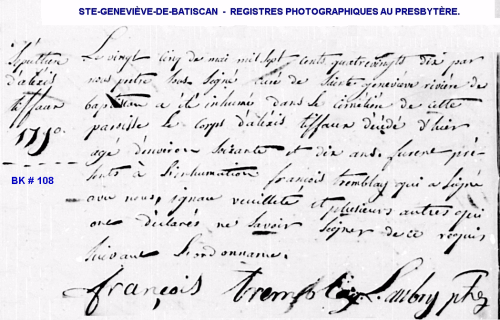 STE-GENEVIÈVE-DE-BATISCAN - REGISTRES PHOTOGRAPHIQUES AU PRESBYTÈRE.
Sépulture
d'alexis
tiffaux
1790.
BK # 108
Le vingt cinq de mai mil sept cents quatrevingts dix par
nous prêtre sous signé curé de Sainte geneviève rivière de
batiscan a été inhumé dans le cimetière de cette
paroisse le corps d'alexis tiffaux décédé d'hier
agé d'environ soixante et dix ans. furent pré-
sents à l'inhumation françois tremblay qui a signé
avec nous, ignace veuilleté et plusieurs autres qui
ont déclarés ne savoir signer de ce requis
suivant l'ordonnance.
françois tremblay ptre